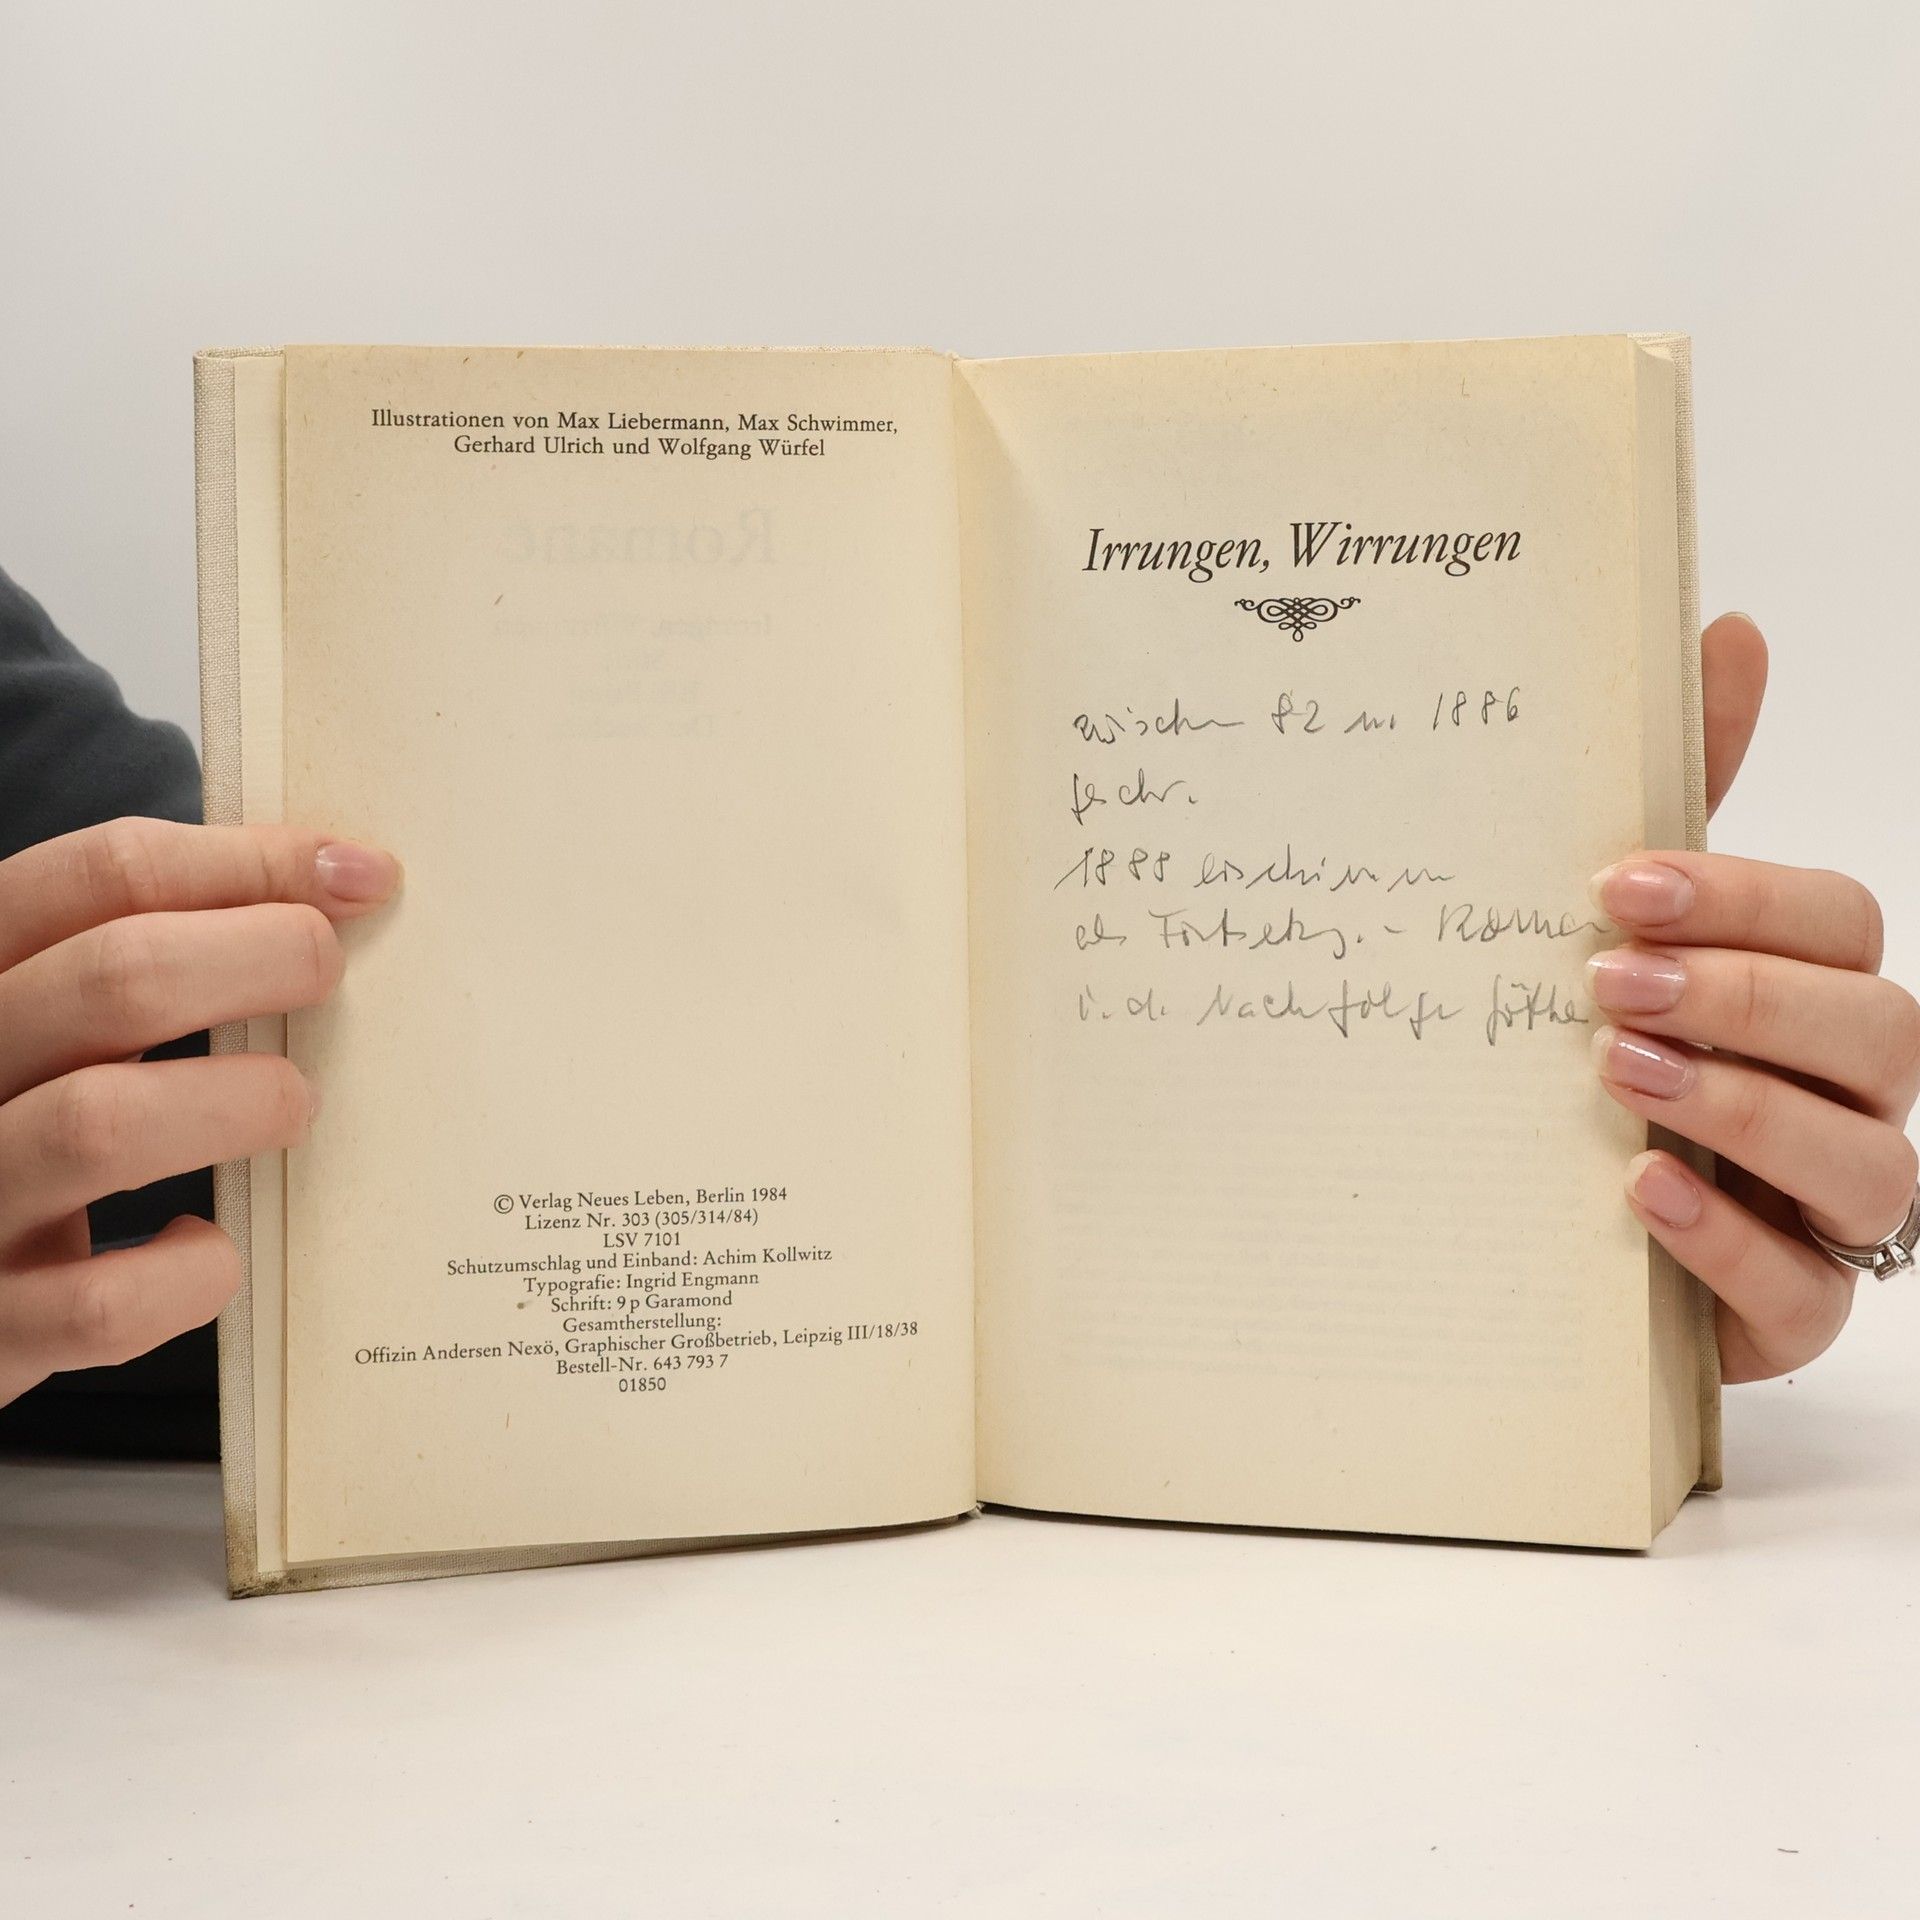 Illustrationen von Max Liebermann, Max Schwimmer,
Gerhard Ulrich und Wolfgang Würfel
© Verlag Neues Leben, Berlin 1984
Lizenz Nr. 303 (305/314/84)
LSV 7101
Schutzumschlag und Einband: Achim Kollwitz
Typografie: Ingrid Engmann
Schrift: 9 p Garamond
Gesamtherstellung:
Offizin Andersen Nexö, Graphischer Großbetrieb, Leipzig III/18/38
Bestell-Nr. 643 793 7
01850
Irrungen, Wirrungen
zwischen 82 u. 1886
geschr.
1888 erschienen
als Fortsetzg. - Roman
i. d. Nachfolge Göthe